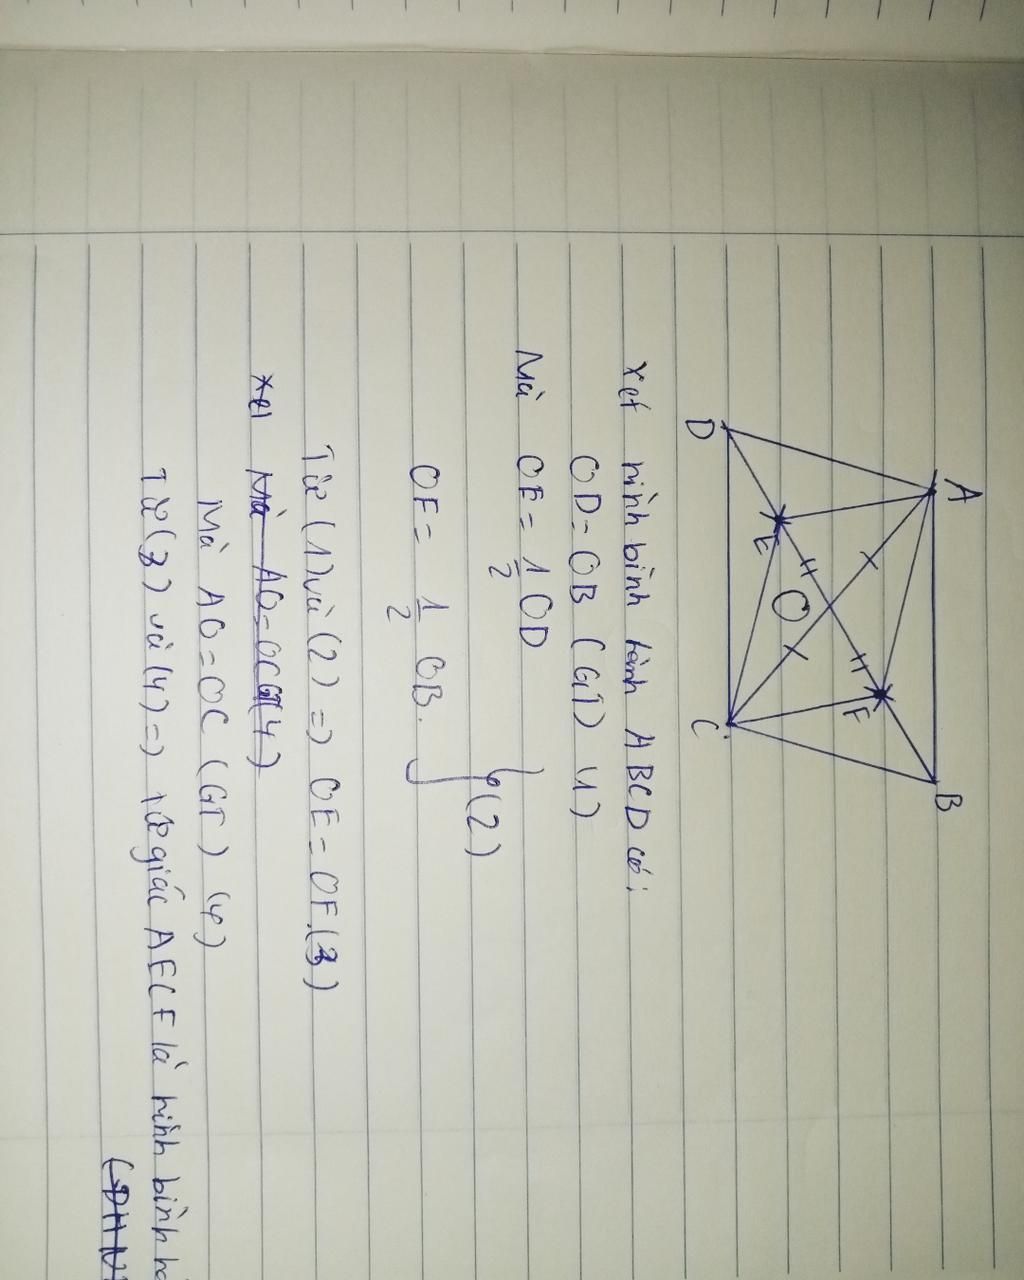 A
B
D
E
O
F
C
Xét hình bình hành ABCD có:
OD = OB (GT) (1)
Mà OE = 1/2 OD
(2)
OF = 1/2 OB.
Từ (1) và (2) => OE = OF (3)
Xét Mà AO = OC (4)
Mà AO = OC (GT) (4)
Từ (3) và (4) => tứ giác AECF là hình bình
(DHN